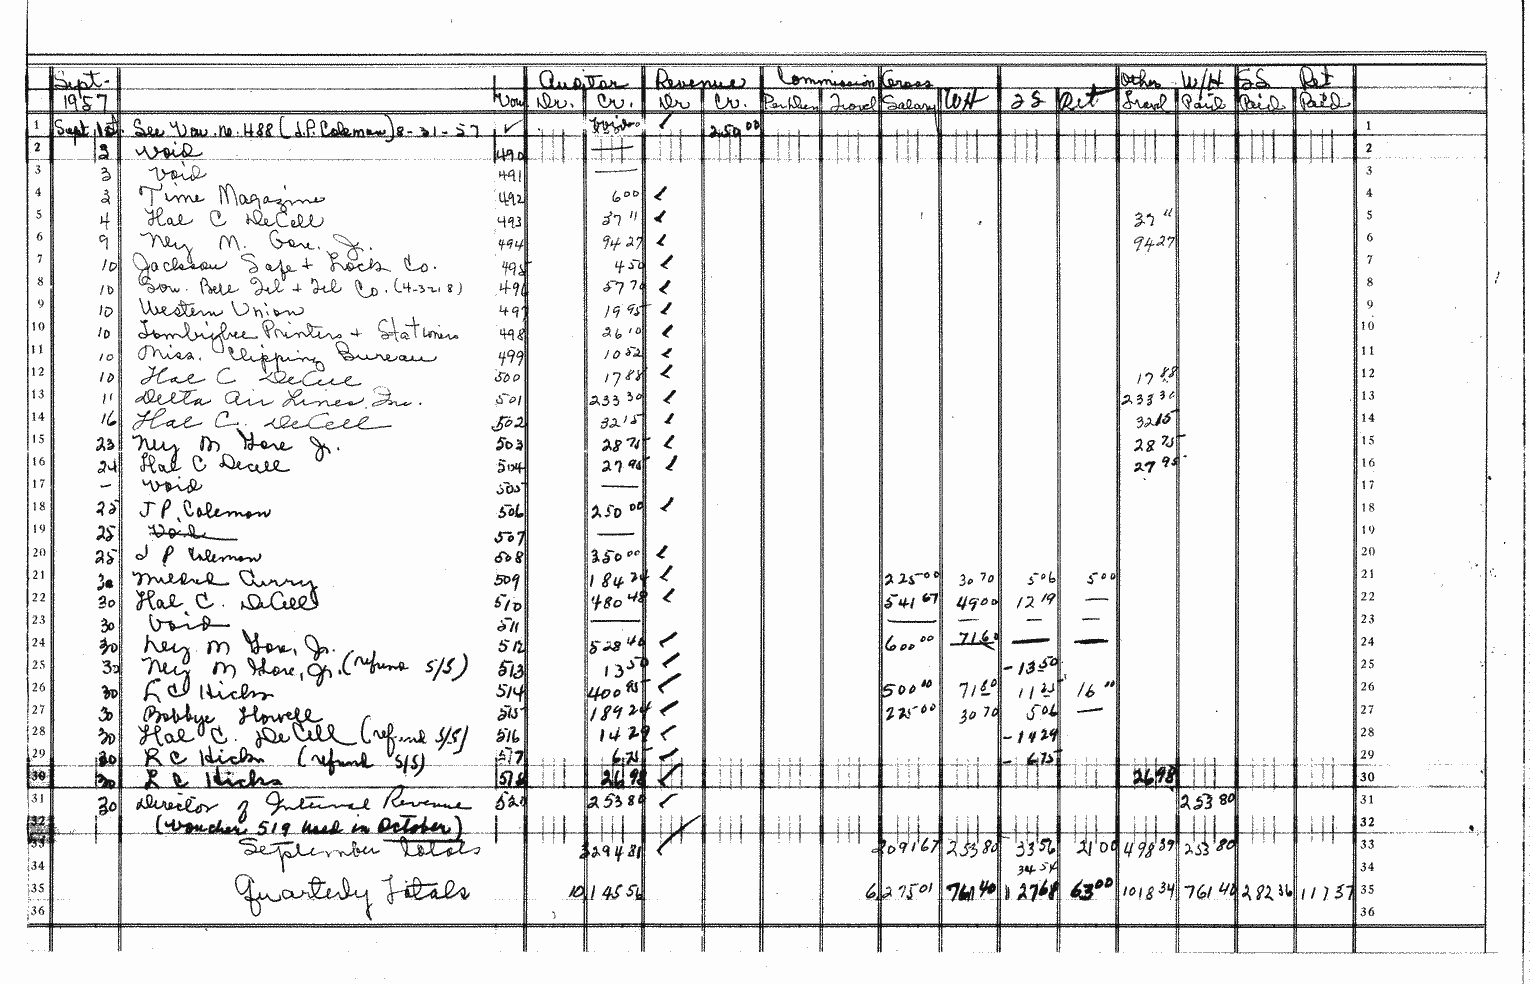 Sept- Auditor Revenue Commission Gross Other W/H SS Ret
1957 Vou Dr. Cr. Dr Cr. Travel Salary WH SS Ret Travel Paid Paid Paid
1 Sept 1st See Vou. no. 488 (J.P. Coleman) 8-31-57 ✓ Void ✓ 250 00 1
2 2 Void 490 — 2
3 3 Void 491 — 3
4 3 Time Magazine 492 6 00 ✓ 4
5 4 Hal C DeCell 493 37 11 ✓ 37 11 5
6 9 Ney M. Gore, Jr. 494 94 27 ✓ 94 27 6
7 10 Jackson Safe + Lock Co. 495 4 50 ✓ 7
8 10 Sou. Bell Tel + Tel Co. (4-3218) 496 57 70 ✓ 8
9 10 Western Union 497 19 95 ✓ 9
10 10 Tombigbee Printers + Stationers 498 26 10 ✓ 10
11 10 Miss. Clipping Bureau 499 10 52 ✓ 11
12 10 Hal C DeCell 500 17 88 ✓ 17 88 12
13 11 Delta Air Lines, Inc. 501 233 30 ✓ 233 30 13
14 16 Hal C. DeCell 502 32 15 ✓ 32 15 14
15 23 Ney M Gore Jr. 503 28 75 ✓ 28 75 15
16 24 Hal C Decell 504 27 95 ✓ 27 95 16
17 — Void 505 — 17
18 25 J P. Coleman 506 250 00 ✓ 18
19 25 Void 507 — 19
20 25 J P Coleman 508 350 00 ✓ 20
21 30 Mildred Curry 509 184 24 ✓ 225 00 30 70 5 06 5 00 21
22 30 Hal. C. DeCell 510 480 48 ✓ 541 67 49 00 12 19 — 22
23 30 Void 511 — — — — — 23
24 30 Ney M Gore, Jr. 512 528 40 ✓ 600 00 71 60 — — 24
25 30 Ney M Gore, Jr. (refund S/S) 513 13 50 ✓ -13 50 25
26 30 L C Hicks 514 400 95 ✓ 500 00 71 80 11 25 16 00 26
27 30 Bobbye Howell 515 189 24 ✓ 225 00 30 70 5 06 — 27
28 30 Hal C. DeCell (refund S/S) 516 14 29 ✓ -14 29 28
29 30 L C Hicks (refund S/S) 517 6 75 ✓ - 6 75 29
30 30 L C Hicks 518 26 98 ✓ 26 98 30
31 30 Director of Internal Revenue 520 253 80 ✓ 253 80 31
32 (Voucher 519 used in October) 32
33 September Totals 3294 81 ✓ 2091 67 253 80 33 56 21 00 498 39 253 80 33
34 34 54 34
35 Quarterly Totals 10,145 56 6,275 01 761 40 127 68 63 00 1018 34 761 40 282 36 117 37 35
36 36